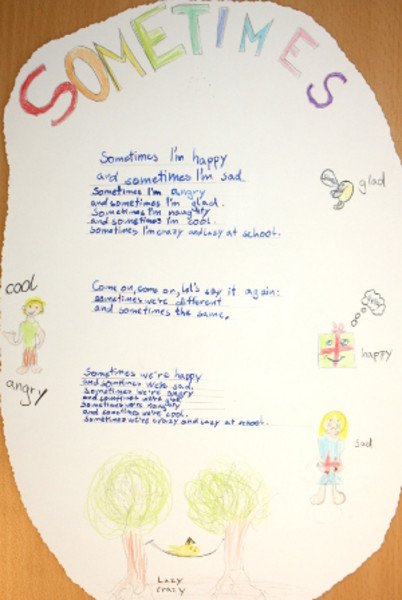 SOMETIMES
Sometimes I'm happy
and sometimes I'm sad.
Sometimes I'm angry
and sometimes I'm glad.
Sometimes I'm naughty
and sometimes I'm cool.
Sometimes I'm crazy and lazy at school.
glad
Come on, come on, Let's say it again:
sometimes we're different
and sometimes the same.
cool
angry
happy
Sometimes we're happy
and sometimes we're sad.
Sometimes we're angry
and sometimes we're glad
Sometimes we're naughty
and sometimes we're cool.
Sometimes we're crazy and lazy at school.
sad
Lazy
crazy